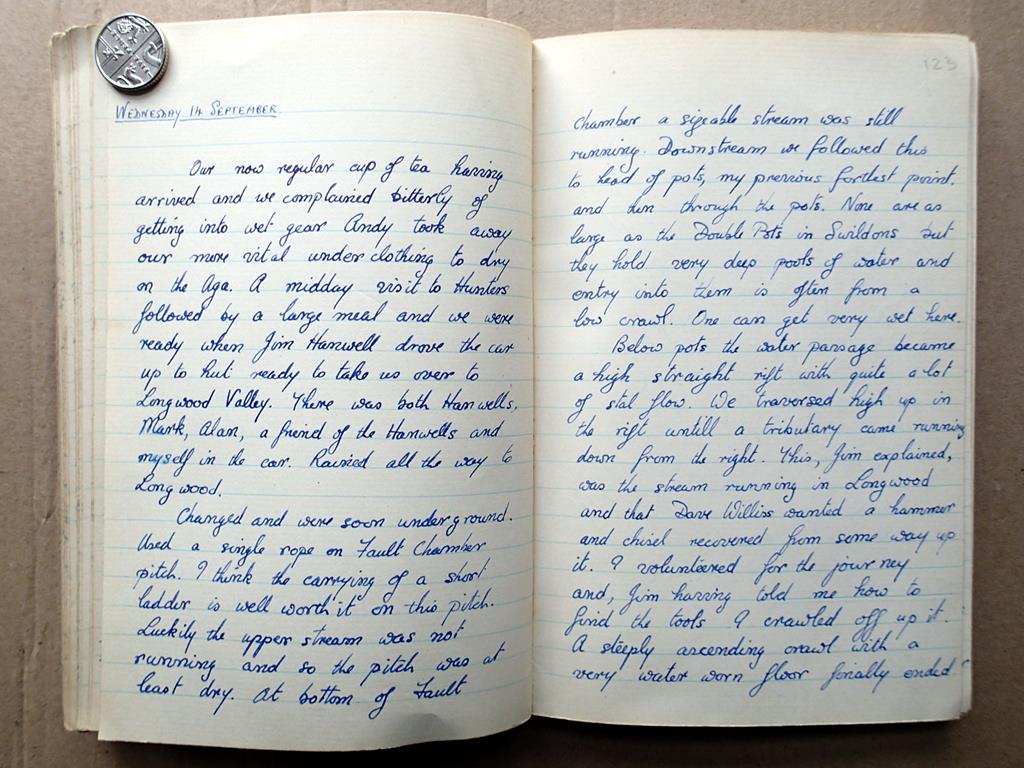 WEDNESDAY 14 SEPTEMBER
Our now regular cup of tea having
arrived and we complained bitterly of
getting into wet gear Andy took away
our more vital under clothing to dry
on the Aga. A midday visit to Hunters
followed by a large meal and we were
ready when Jim Hanwell drove the car
up to hut ready to take us over to
Longwood Valley. There was both Hanwells,
Mark, Alan, a friend of the Hanwells and
myself in the car. Rained all the way to
Longwood.
Changed and were soon underground.
Used a single rope on Fault Chamber
pitch. I think the carrying of a short
ladder is well worth it on this pitch.
Luckily the upper stream was not
running and so the pitch was at
least dry. At bottom of Fault
123
chamber a sizeable stream was still
running. Downstream we followed this
to head of pots, my previous fortlest point.
and then through the pots. None are as
large as the Double Pots in Swildons but
they hold very deep pools of water and
entry into them is often from a
low crawl. One can get very wet here.
Below pots the water passage became
a high straight rift with quite a lot
of stal flow. We traversed high up in
the rift untill a tributary came running
down from the right. This, Jim explained,
was the stream running in Longwood
and that Dave Williss wanted a hammer
and chisel recovered from some way up
it. I volunteered for the journey
and, Jim having told me how to
find the tools I crawled off up it.
A steeply ascending crawl with a
very water worn floor finally ended